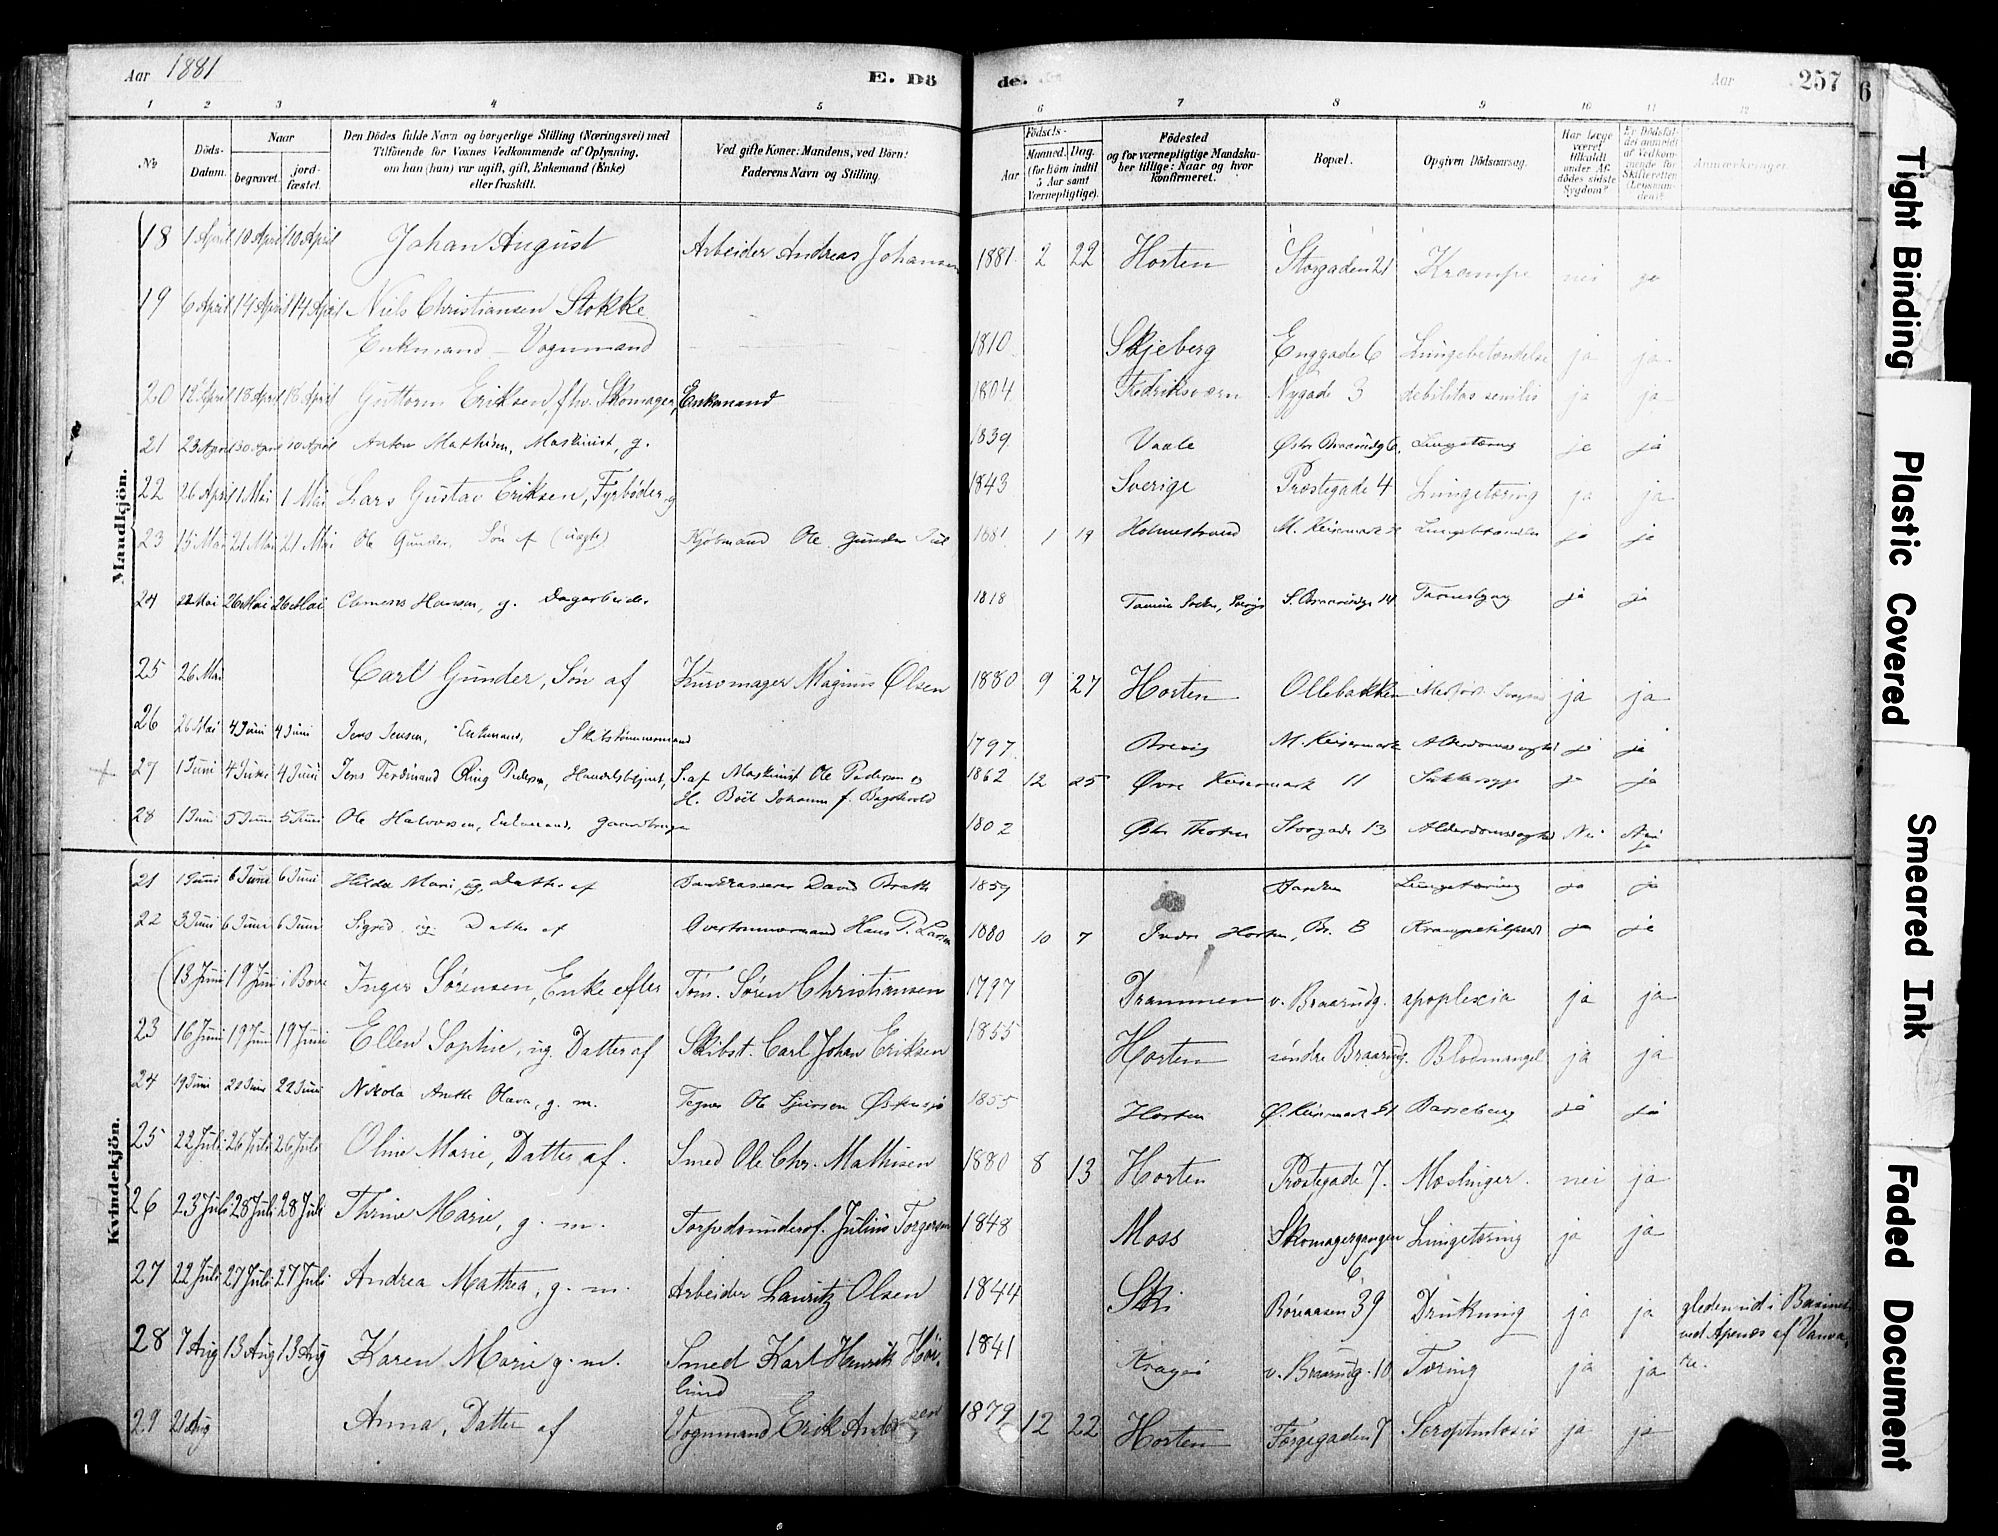 Aar 1881 E. Dö
de. Aar 257 6
1 2 3 4 5
6 7 8 9 10 11 12
№ Döds-Datum. Naar begravet. jordfæstet. Den Dödes fulde Navn og borgerlige Stilling (Næringsvei) med Tilföiende for Voxnes Vedkommende af Oplysning, om han (hun) var ugift, gift, Enkemand (Enke) eller fraskilt. Ved gifte Koner: Mandens, ved Börn: Faderens Navn og Stilling.
Födsels- Aar Maaned. Dag. (for Börn indtil 5 Aar samt Værnepligtige). Födested og for værnepligtige Mandskaber tillige: Naar og hvor konfirmeret. Bopæl. Opgiven Dödsaarsag. Har læge været tilkaldt under Afdödes sidste Sygdom? Er Dödsfaldet anmeldt af Vedkommende for Skifteretten (Lensmanden)? Anmærkninger
Mandkjön.
18 1 April 10 April 10 April Johan August Arbeider Andreas Johansen 1881 2 22 Horten Storgaden 21 Krampe nei ja
19 6 April 14 April 14 April Niels Christiansen Stokke
Enkmand - Vognmand 1810 Skjeberg Enggade 6 Lungebetændelse ja ja
20 12 April 18 April 18 April Guttorm Eriksen, fhv. Skomager, Enkemand 1804 Fredriksværn Nygade 3 debilitas senilis ja ja
21 23 April 30 April 10 April Anton Mathisen, Maskinist, g. 1839 Vaale Østre Braarudg 6, Lungetæring ja ja
22 26 April 1 Mai 1 Mai Lars Gustav Eriksen, Fyrbøder, g 1843 Sverige Prestegade 4 Lungetæring ja ja
23 15 Mai 21 Mai 21 Mai Ole Gunder, Søn af (uægte) Kjøbmand Ole Gunder 1881 1 19 Holmestrand M. Keisermark Lungebetændelse ja ja
24 22 Mai 26 Mai 26 Mai Clemens Hansen, g. Dagarbeider 1818 S. Braarudg 14 ja ja
25 26 Mai Carl Gunder, Søn af Kurvmager Magnus Olsen 1880 9 27 Horten Ollebakken Medfød. ja ja
26 26 Mai 4 Juni 4 Juni Jens Jensen, Enkemand, Skibstømmermand 1797 Brevig M. Keisermark Alderdomssvaghed ja ja
27 1 Juni 4 Juni 4 Juni Jens Ferdinand Ring Pedersen, Handelsbetjent, S. af Maskinist Ole Pedersen og
H. Boel Johanne f. 1862 12 25 Øvre Keisermark 11 Sukkersyge ja ja
28 1 Juni 5 Juni 5 Juni Ole Halvorsen, Enkemand, Gaardbruger 1802 Østre Thoten Storgade 13 Alderdomssvaghed Nei Nei
ja
Kvindekjön.
21 1 Juni 6 Juni 6 Juni Hilda Marie, ug. Datter af David 1859 Lungetæring ja ja
22 3 Juni 6 Juni 6 Juni Sigrid, ug. Datter af Overtømmermand Hans P. Larsen 1880 10 7 Indre Horten, Br. B Krampetilfælde ja ja
(13 Juni 19 Juni i Borre Inger Sørensen, Enke efter Tøm. Søren Christiansen 1797 Drammen v. Braarudg. apoplexia ja ja
23 16 Juni 19 Juni 19 Juni Ellen Sophie, ug. Datter af Skibst. Carl Johan Eriksen 1855 Horten søndre Braarudg. Blodmangel ja ja
24 19 Juni 22 Juni 22 Juni Nikola Anette Olava, g. m. Tegner Ole 1855 Horten Ø. Keisermark 21 Barseleng ja ja
25 22 Juli 26 Juli 26 Juli Oline Marie, Datter af. Smed Ole Chr. Mathisen 1880 8 13 Horten Prestegade 7. Mæslinger. nei ja
26 23 Juli 28 Juli 28 Juli Thrine Marie, g. m. Torpedounderof. Julius Torgersen 1848 Moss Skomagergangen 6 Lungetæring ja ja
27 22 Juli 27 Juli 27 Juli Andrea Mathea, g. m. Arbeider Lauritz Olsen 1844 Ski Røreaasen 39 Drukning ja ja gleden ud i Basinet
ved Apenæs af Vanvare.
28 7 Aug 13 Aug 13 Aug Karen Marie g. m. Smed Karl Henrik Hörlund 1841 Kragerø v. Braarudg. 10 Tæring ja ja
29 21 Aug Anna, Datter af Vognmand Erik Andersen 1879 12 22 Horten Færgegaden 7 Scrophulosis ja ja
Tight Binding
Plastic Covered
Smeared Ink
Faded Document